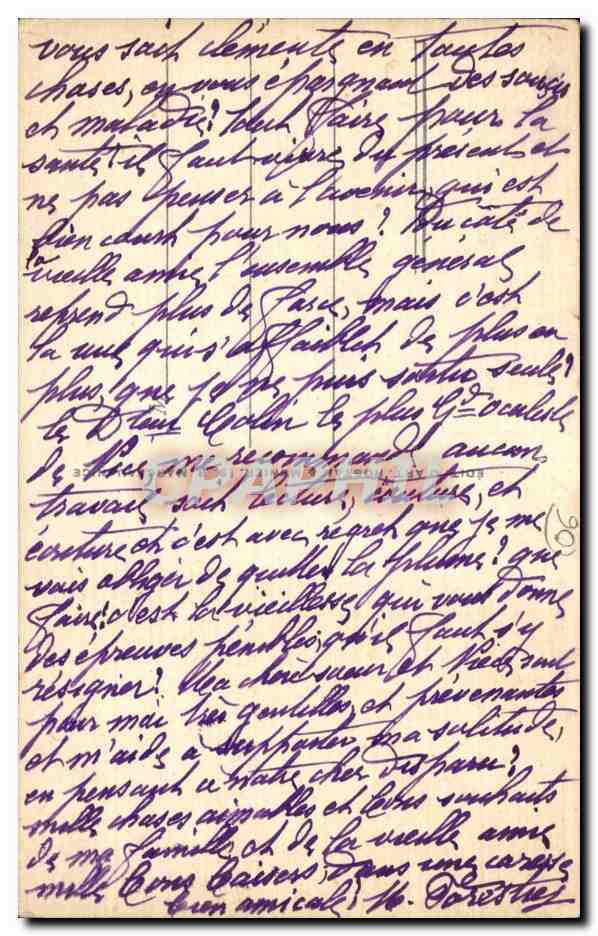 vous soit clémente, en toutes
choses, en vous épargnant des soucis
et maladie? tout faire pour la
santé! il faut vivre du présent et
ne pas penser à l'avenir, qui est
bien court pour nous? Du côté de
vieille amie l'ensemble général
reprend plus de force, mais c'est
la vue qui s'affaiblit de plus en
plus, que je ne puis sortir seule?
le Dteur Colin le plus Gd oculiste
de me recommande aucun
travail soit lecture, couture, et
écriture et c'est avec regret que je me
vois obliger de quitter la plume? que
faire! c'est la vieillesse qui vous donne
des épreuves pénibles, qu'il faut s'y
résigner? Ma chère soeur et sont
pour moi très gentilles, et prévenantes
et m'aide à supporter ma solitude,
en pensant à notre cher disparu?
mille choses aimables et bons souhaits
de ma famille et de la vieille amie
mille bons baisers, dans une caresse
bien amicale, M.
90
CPAPHIL